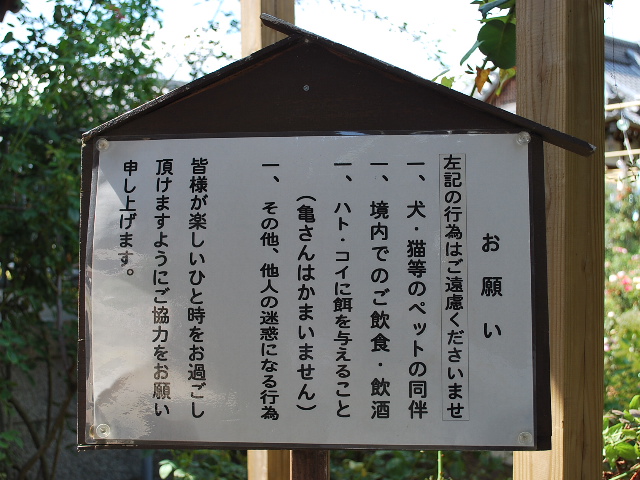 お願い
左記の行為はご遠慮くださいませ
一、犬・猫等のペットの同伴
一、境内でのご飲食・飲酒
一、ハト・コイに餌を与えること
（亀さんはかまいません）
一、その他、他人の迷惑になる行為
皆様が楽しいひと時をお過ごし
頂けますようにご協力をお願い
申し上げます。